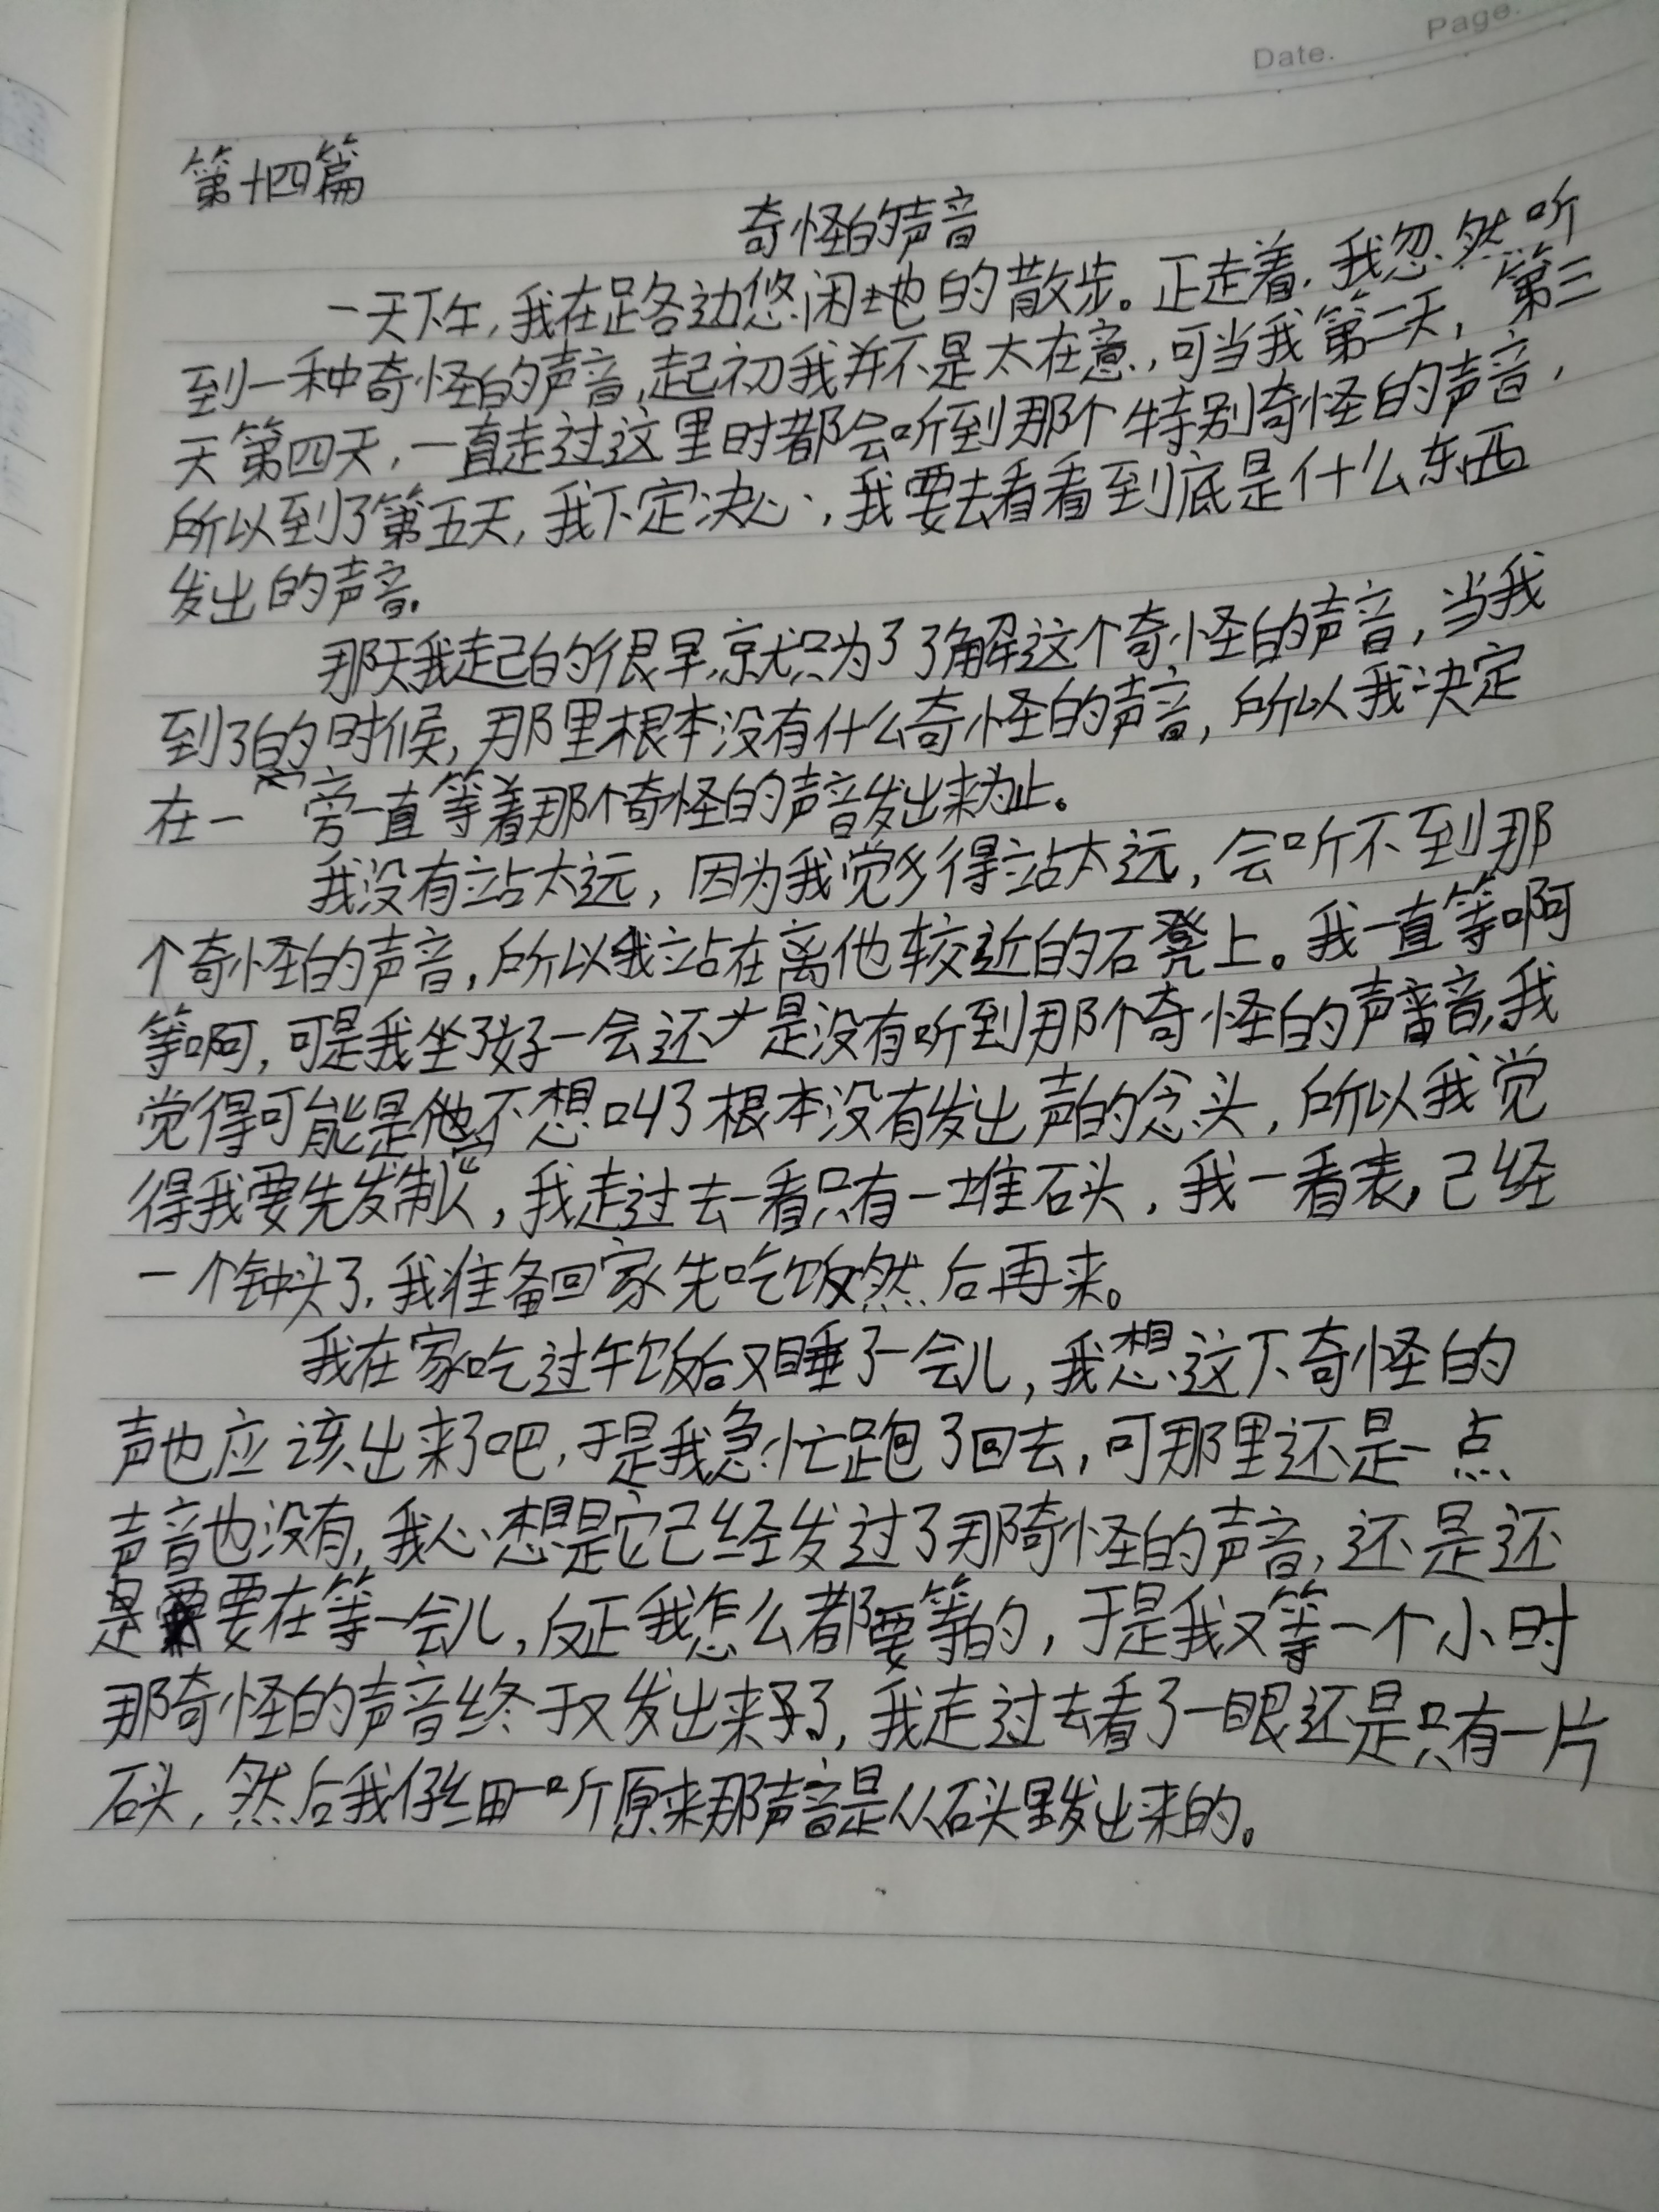 Date.
Page.
第十四篇
奇怪的声音
一天下午，我在路边悠闲地的散步。正走着，我忽然听
到一种奇怪的声音，起初我并不是太在意，可当我第二天，第三
天第四天，一直走过这里时都会听到那个特别奇怪的声音，
所以到了第五天，我下定决心，我要去看看到底是什么东西
发出的声音。
那天我起的很早，就只为了了解这个奇怪的声音，当我
到了的时候，那里根本没有什么奇怪的声音，所以我决定
在一旁一直等着那个奇怪的声音发出来为止。
我没有站太远，因为我觉得站太远，会听不到那
个奇怪的声音，所以我站在离他较近的石凳上。我一直等啊
等啊，可是我坐了好一会还是没有听到那个奇怪的声音，我
觉得可能是他不想叫了根本没有发出声的念头，所以我觉
得我要先发制人，我走过去一看只有一堆石头，我一看表，己经
一个钟头了，我准备回家先吃饭然后再来。
我在家吃过午饭后又睡了一会儿，我想这下奇怪的
声也应该出来了吧，于是我急忙跑了回去，可那里还是一点
声音也没有，我心想是它己经发过了那奇怪的声音，还是还
是要在等一会儿，反正我怎么都要等的，于是我又等一个小时
那奇怪的声音终于又发出来了，我走过去看了一眼还是只有一片
石头，然后我仔细一听原来那声音是从石头里发出来的。